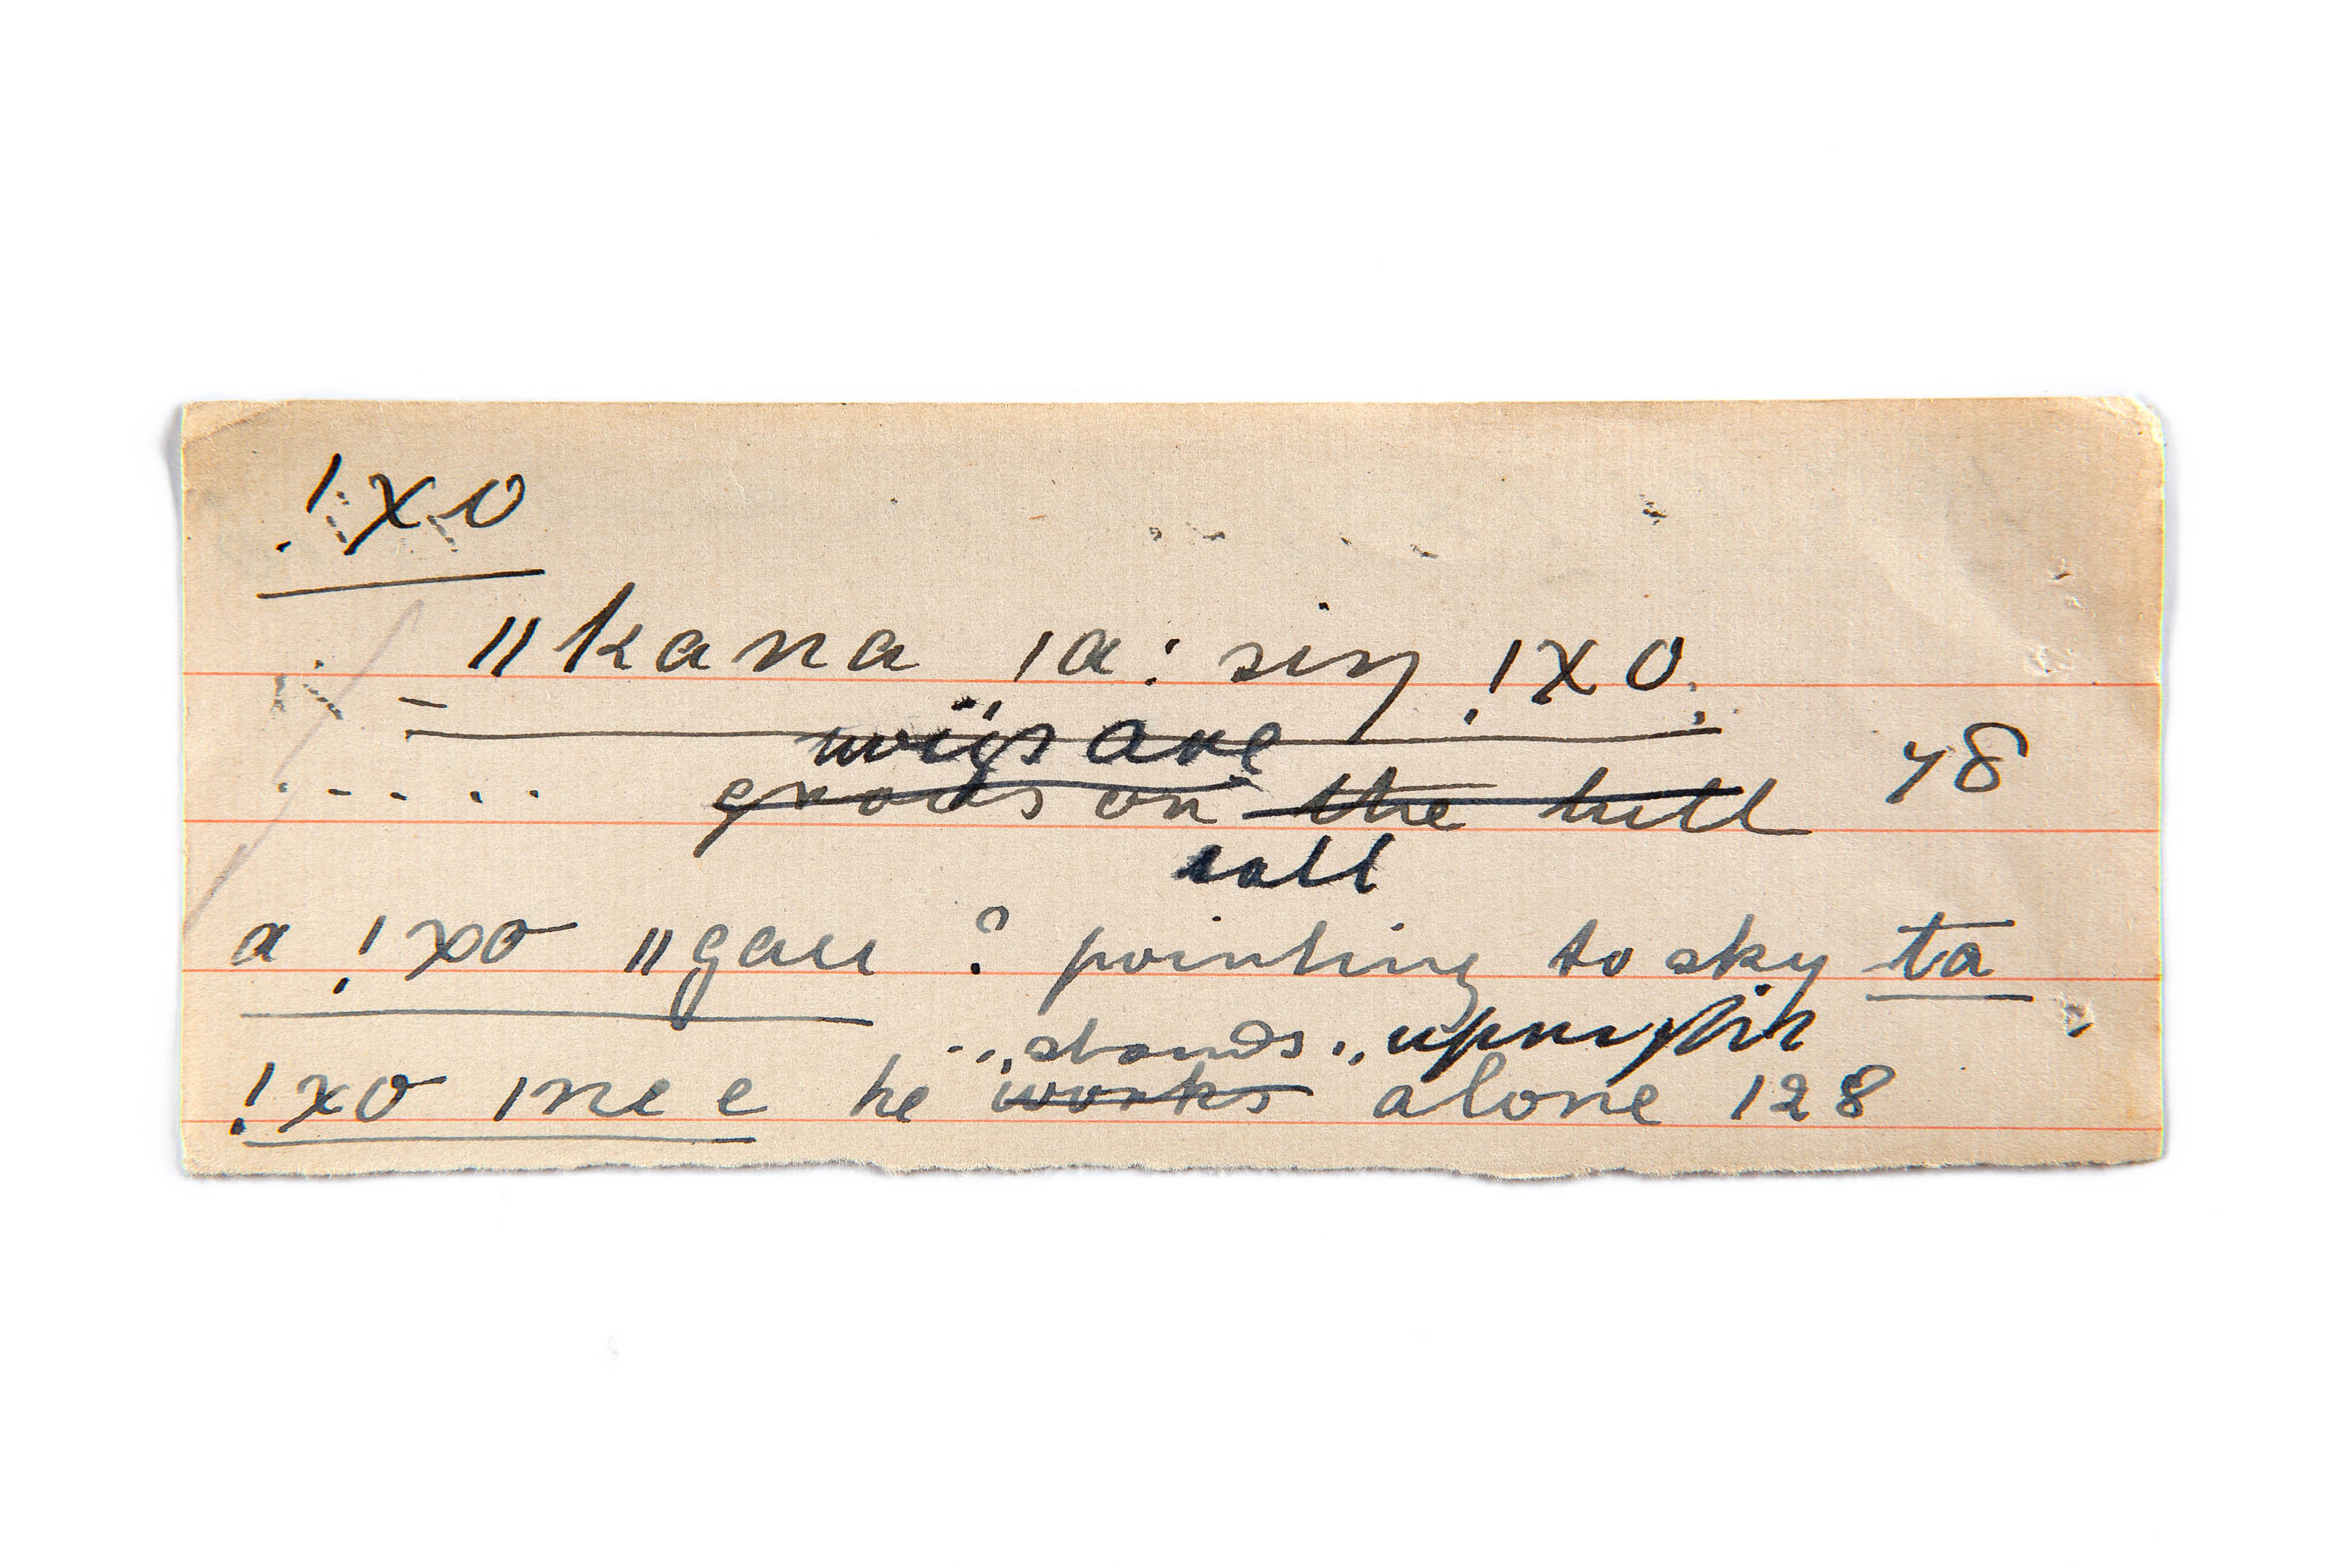 !xo
ǁkana ǀa: siŋ !xo.
are
..... on the hill 48
tall
a !xo ǁgau ? pointing to sky ta
..stands.. upright
!xo ǀnee he works alone 128